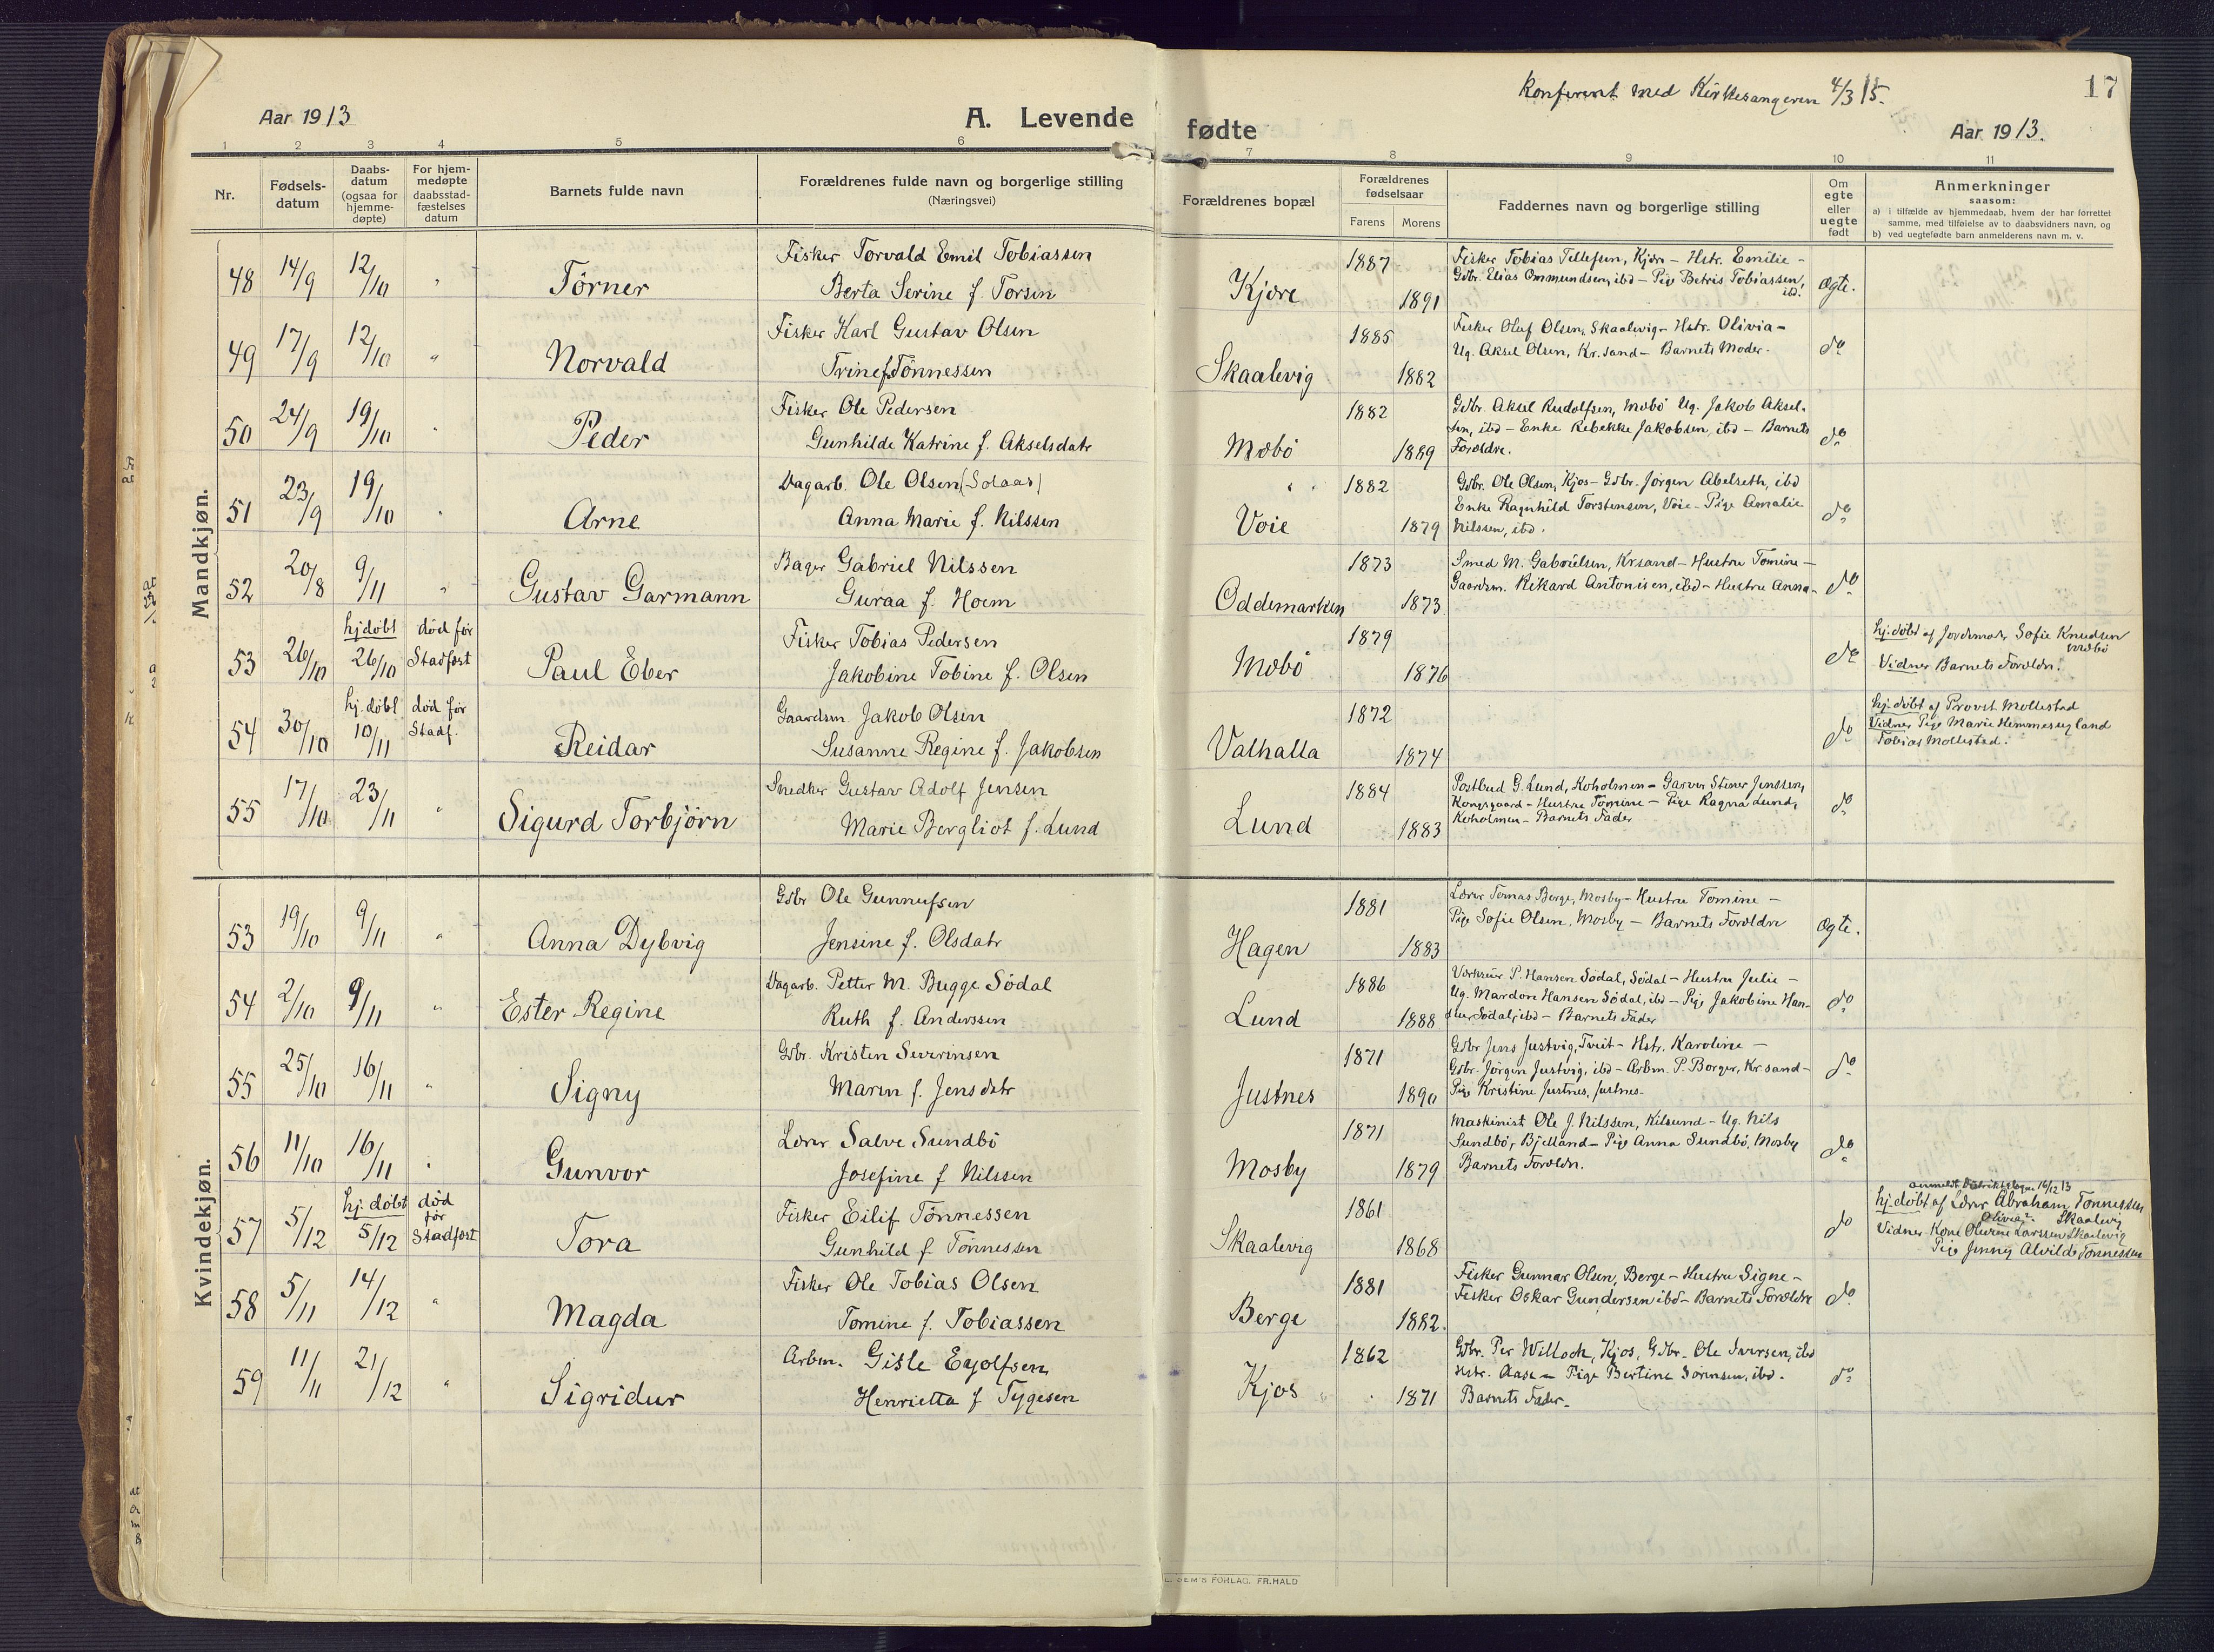 Konfereret med Kirkesangeren 4/3 15.
17
Aar 1913
A. Levende
fødte
Aar 1913.
1 2 3 4 5 6 7 8 9 10 11
Nr.
Fødsels-
datum
Daabs-
datum
(ogsaa for
hjemme-
døpte)
For hjem-
medøpte
daabsstad-
fæstelses
datum
Barnets fulde navn
Forældrenes fulde navn og borgerlige stilling
(Næringsvei)
Forældrenes bopæl
Forældrenes
fødselsaar
Farens Morens
Faddernes navn og borgerlige stilling
Om
egte
eller
uegte
født
Anmerkninger
saasom:
a) i tilfælde av hjemmedaab, hvem der har forrettet
samme, med tilføielse av to daabsvidners navn, og
b) ved uegtefødte barn anmelderens navn m. v.
Mandkjøn.
48 14/9 12/10 " Tørner
Fisker Torvald Emil Tobiassen
Berta Serine f. Torsen
Kjære 1887 1891
Fisker Tobias Tellefsen, Kjære – Hstr. Emilie –
Gdbr. Elias Ommundsen, ibd – Pige Betris Tobiassen,
ibd.
Ægte.
49 17/9 12/10 " Norvald
Fisker Karl Gustav Olsen
Trine f. Tønnessen
Skaalevig 1885 1882
Fisker Oluf Olsen, Skaalevig – Hstr. Olivia –
Ug. Aksel Olsen, Kr.sand – Barnets Moder.
do
50 24/9 19/10 " Peder
Fisker Ole Pedersen
Gunhilde Katrine f. Akselsdatr
Mæbø 1882 1889
Gdbr. Aksel Rudolfsen, Mæbø Ug. Jakob Aksel-
sen, ibd – Enke Rebekke Jakobsen, ibd – Barnets
Forældre.
do
51 23/9 19/10 " Arne
Dagarb. Ole Olsen (Solaas)
Anna Marie f. Nilssen
Voie 1882 1879
Gdbr. Ole Olsen, Kjos – Gdbr. Jørgen Abelseth, ibd
Enke Ragnhild Torstensen, Voie – Pige Amalie
Nilssen, ibd.
do
52 20/8 9/11 " Gustav Garmann
Bager Gabriel Nilssen
Guraa f. Hoem
Oddemarken 1873 1873
Smed M. Gabrielsen, Krsand – Hustru Tomine –
Gaardsm. Rikard Antonisen, ibd – Hustru Anna –
do
53 26/10 hj døbt 26/10 død før Stadfæst Paul Eber
Fisker Tobias Pedersen
Jakobine Tobine f. Olsen
Mæbø 1879 1876
do
hj. døbt af Jordemoder Sofie Knudsen
Mæbø
Vidner Barnets Forældr.
54 30/10 hj. døbt 10/11 død før Stadf. Reidar
Gaardsm. Jakob Olsen
Susanne Regine f. Jakobsen
Valhalla 1872 1874
do
hj. døbt af Provst Mollestad
Vidner Pige Marie Himmesygland
Tobias Mollestad.
55 17/10 23/11 " Sigurd Torbjørn
Snedker Gustav Adolf Jensen
Marie Bergliot f. Lund
Lund 1884 1883
Postbud G. Lund, Koholmen – Garver Steiner Jenssen,
Kongsgaard – Hustru Tomine – Pige Ragna Lund,
Koholmen – Barnets Fader
do
Kvindekjøn.
53 19/10 9/11 " Anna Dybvig
Gdbr Ole Gunnufsen
Jensine f. Olsdatr
Hagen 1881 1883
Lærer Tomas Berge, Mosby – Hustru Tomine –
Pige Sofie Olsen, Mosby – Barnets Forældre
Ægte.
54 2/10 9/11 " Ester Regine
Dagarb. Petter M. Bugge Sødal
Ruth f. Anderssen
Lund 1886 1888
P. Hansen Sødal, Sødal – Hustru Julie –
Ug. Mardon Hansen Sødal, ibd – Pige Jakobine Han-
sen Sødal, ibd – Barnets Fader
do
55 25/10 16/11 " Signy
Gdbr. Kristen Severinsen
Maren f. Jensdatr
Justnes 1871 1890
Gdbr Jens Justvig, Tveit – Hstr. Karoline –
Gdbr. Jørgen Justvig, ibd – Arbm. P. Borger, Kr.sand –
Pige Kristine Justnes, Justnes.
do
56 11/10 16/11 " Gunvor
Lærer Salve Sundbø
Josefine f Nilssen
Mosby 1871 1879
Maskinist Ole J. Nilssen, Kilsund – Ug. Nils
Sundbø, Bjelland – Pige Anna Sundbø, Mosby
Barnets Forældr.
do
57 5/12 hj. døbt 5/12 død før Stadfæst Tora
Fisker Eilif Tønnessen
Gunhild f. Tønnessen
Skaalevig 1861 1868
do
anmeldt Distriktslægen 16/12 13
hj. døbt af Lærer Abraham Tønnessen
Skaalevig
Vidner Kone Olivia Larssen Skaalevig
Pige Jenny Alvilde Tønnessen
58 5/11 14/12 " Magda
Fisker Ole Tobias Olsen
Tomine f. Tobiassen
Berge 1881 1882.
Fisker Gunnar Olsen, Berge – Hustru Signe –
Fisker Oskar Gundersen ibd – Barnets Forældre
do
59 11/11 21/12 " Sigridur
Arbm. Gisle Eyolfsen
Henrietta f Tygesen
Kjos 1862 1871
Gdbr. Per Willoch, Kjos, Gdbr. Ole Iversen, ibd
Hstr. Aase – Pige Bertine Sørensen, ibd.
Barnets Fader.
do
SEM'S FORLAG, FR.HALD